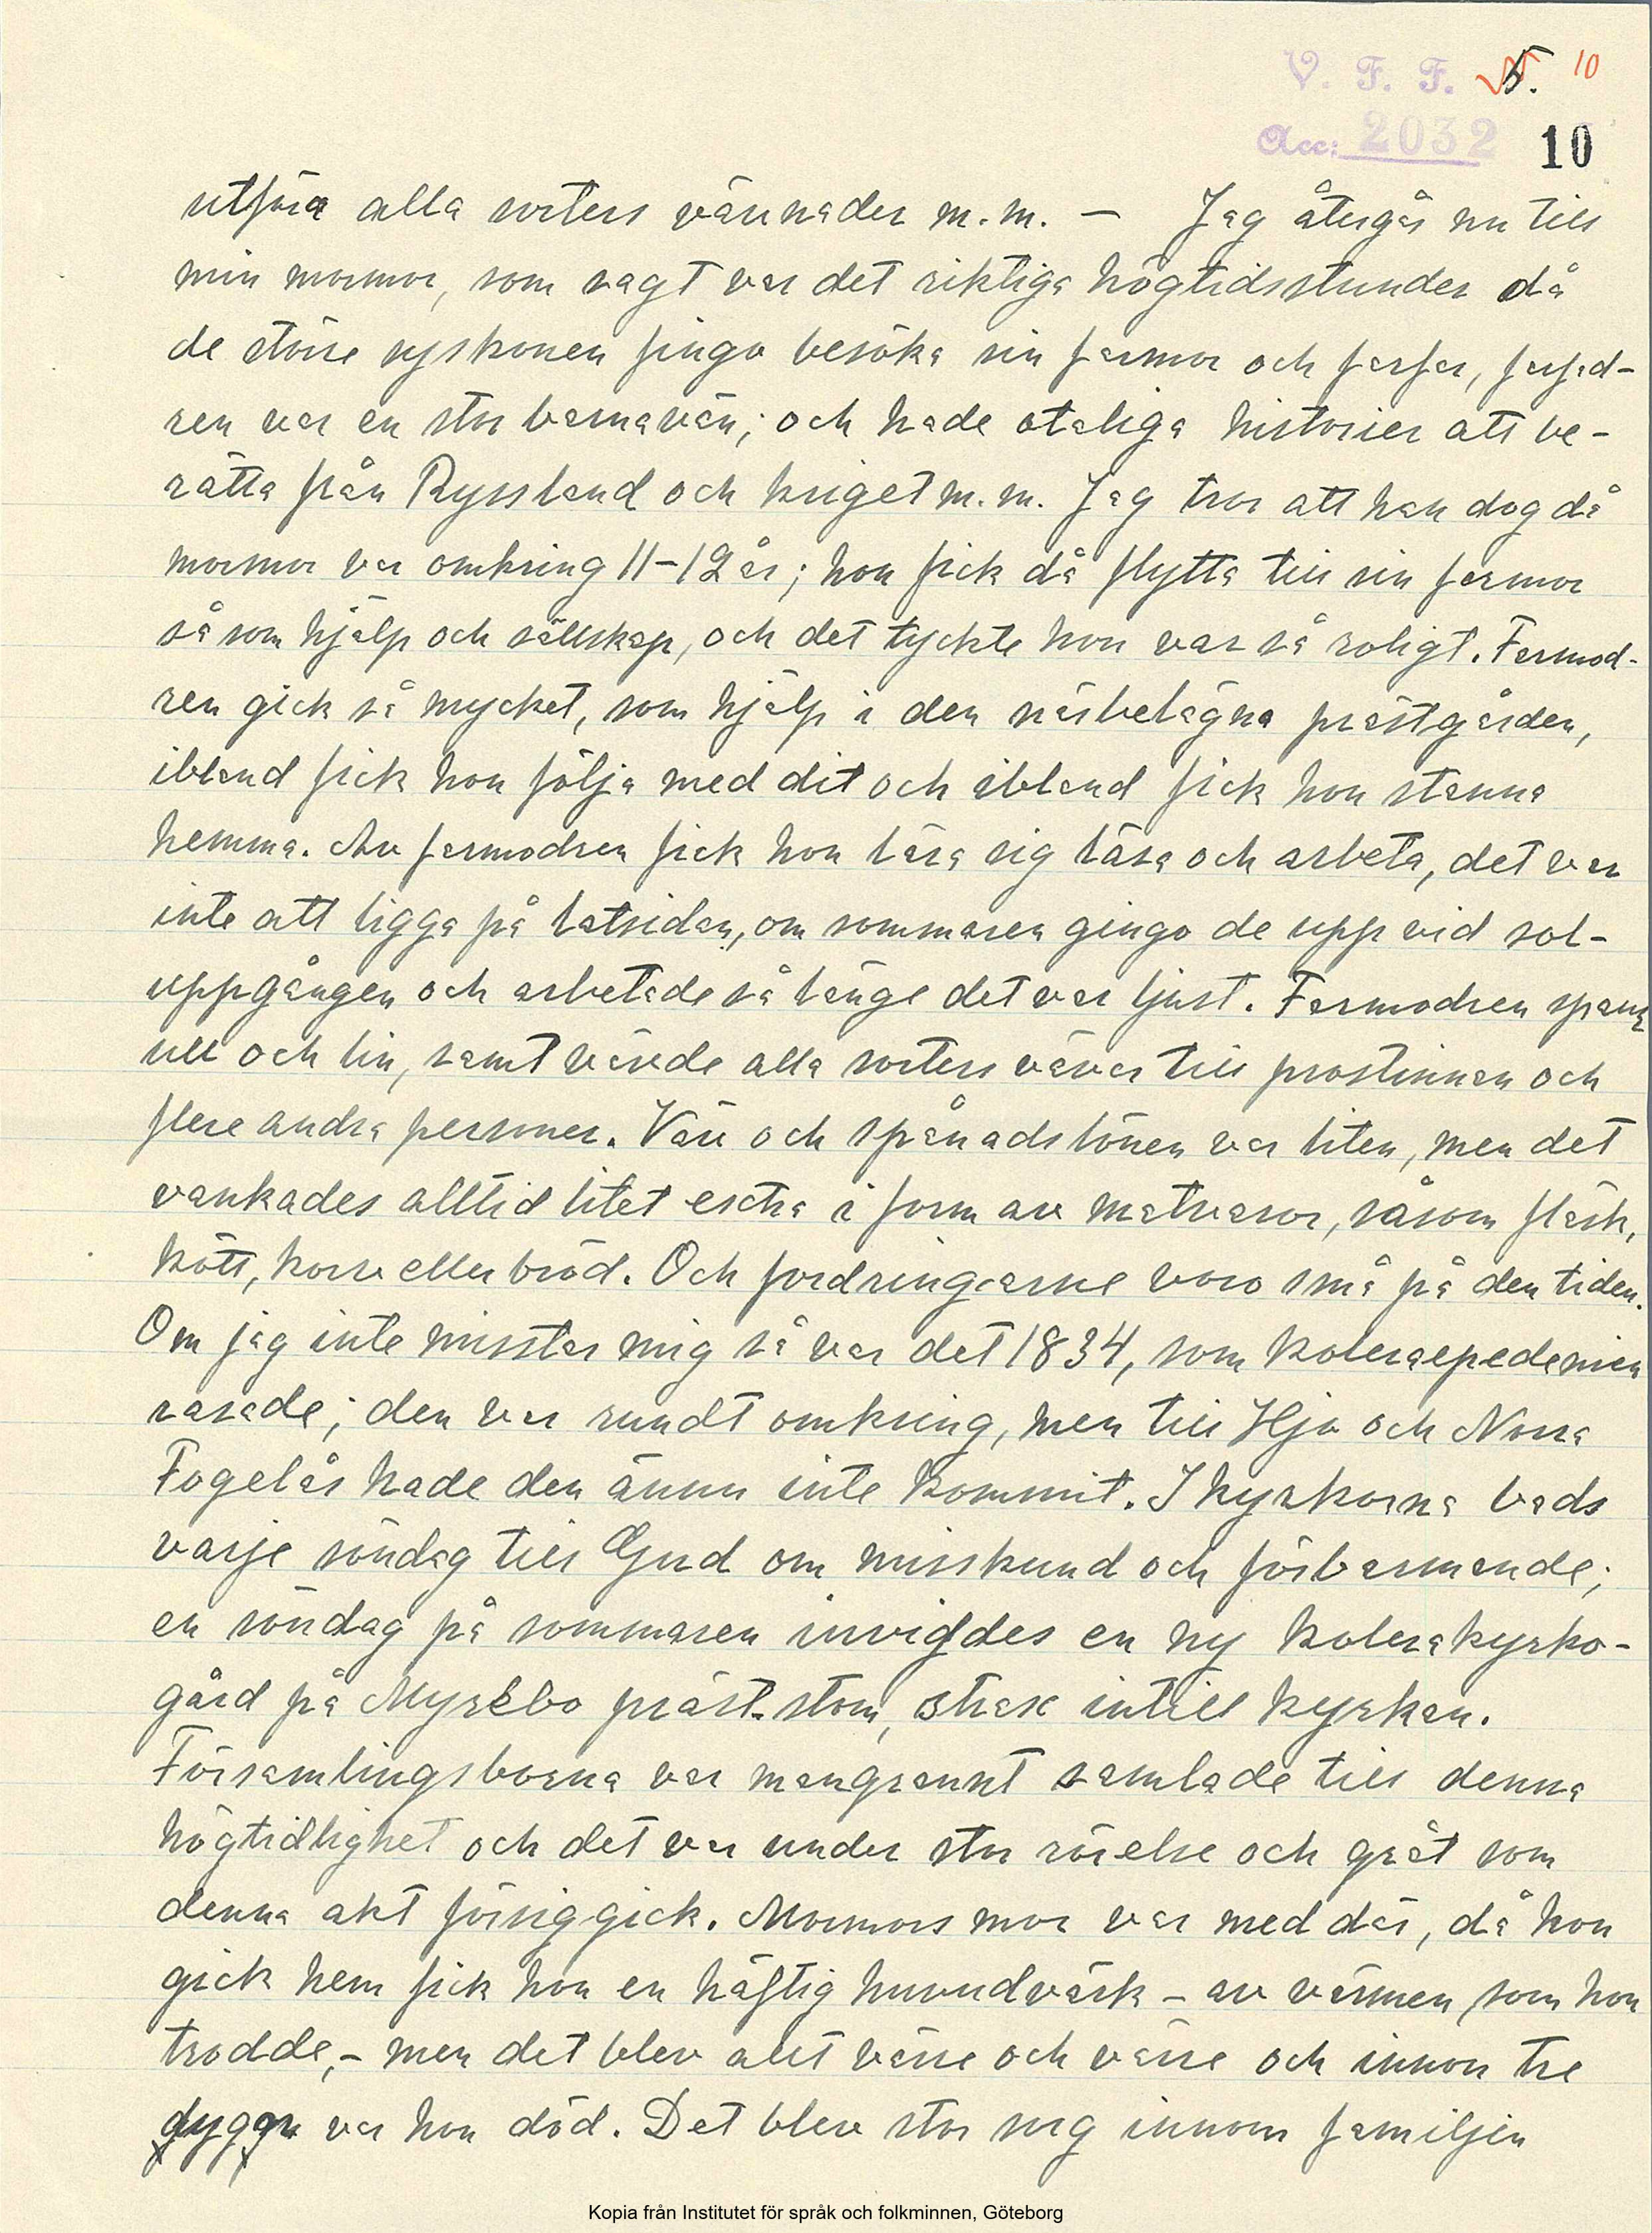 V. F. F. 5. 10
Acc: 2032 10
utföra alla sorters vävnader m.m. — Jag återgår nu till
min mormor, som sagt var det riktiga högtidsstunder då
de större syskonen fingo besöka sin farmor och farfar, farfad-
ren var en stor barnavän; och hade otaliga historier att be-
rätta från Ryssland och kriget m.m. Jag tror att han dog då
mormor var omkring 11-12 år; hon fick då flytta till sin farmor
så som hjälp och sällskap, och det tyckte hon var så roligt. Farmod-
ren gick så mycket, som hjälp i den närbelägna prästgården,
ibland fick hon följa med dit och ibland fick hon stanna
hemma. Av farmodren fick hon lära sig läsa och arbeta, det var
inte att ligga på latsidan, om sommaren gingo de upp vid sol-
uppgången och arbetade så länge det var ljust. Farmodren spann
ull och lin, samt vävde alla sorters vävar till prostinnan och
flere andra personer. Väv och spånadslönen var liten, men det
vankades alltid litet extra i form av matvaror, såsom fläsk,
kött, korv eller bröd. Och fordringarne voro små på den tiden.
Om jag inte misstar mig så var det 1834, som koleraepedemien
rasade; den var rundt omkring, men till Hjo och Norra
Fogelås hade den ännu inte kommit. I kyrkorna bads
varje söndag till Gud om misskund och förbarmande;
en söndag på sommaren invigdes en ny kolerakyrko-
gård på Myrebo präst-stom, strax intill kyrkan.
Församlingsborna var mangrannt samlade till denna
högtidlighet och det var under stor rörelse och gråt som
denna akt försiggick. Mormors mor var med där, då hon
gick hem fick hon en häftig huvudvärk – av värmen, som hon
trodde, – men det blev allt värre och värre och innon tre
dygn var hon död. Det blev stor sorg innom familjen
Kopia från Institutet för språk och folkminnen, Göteborg